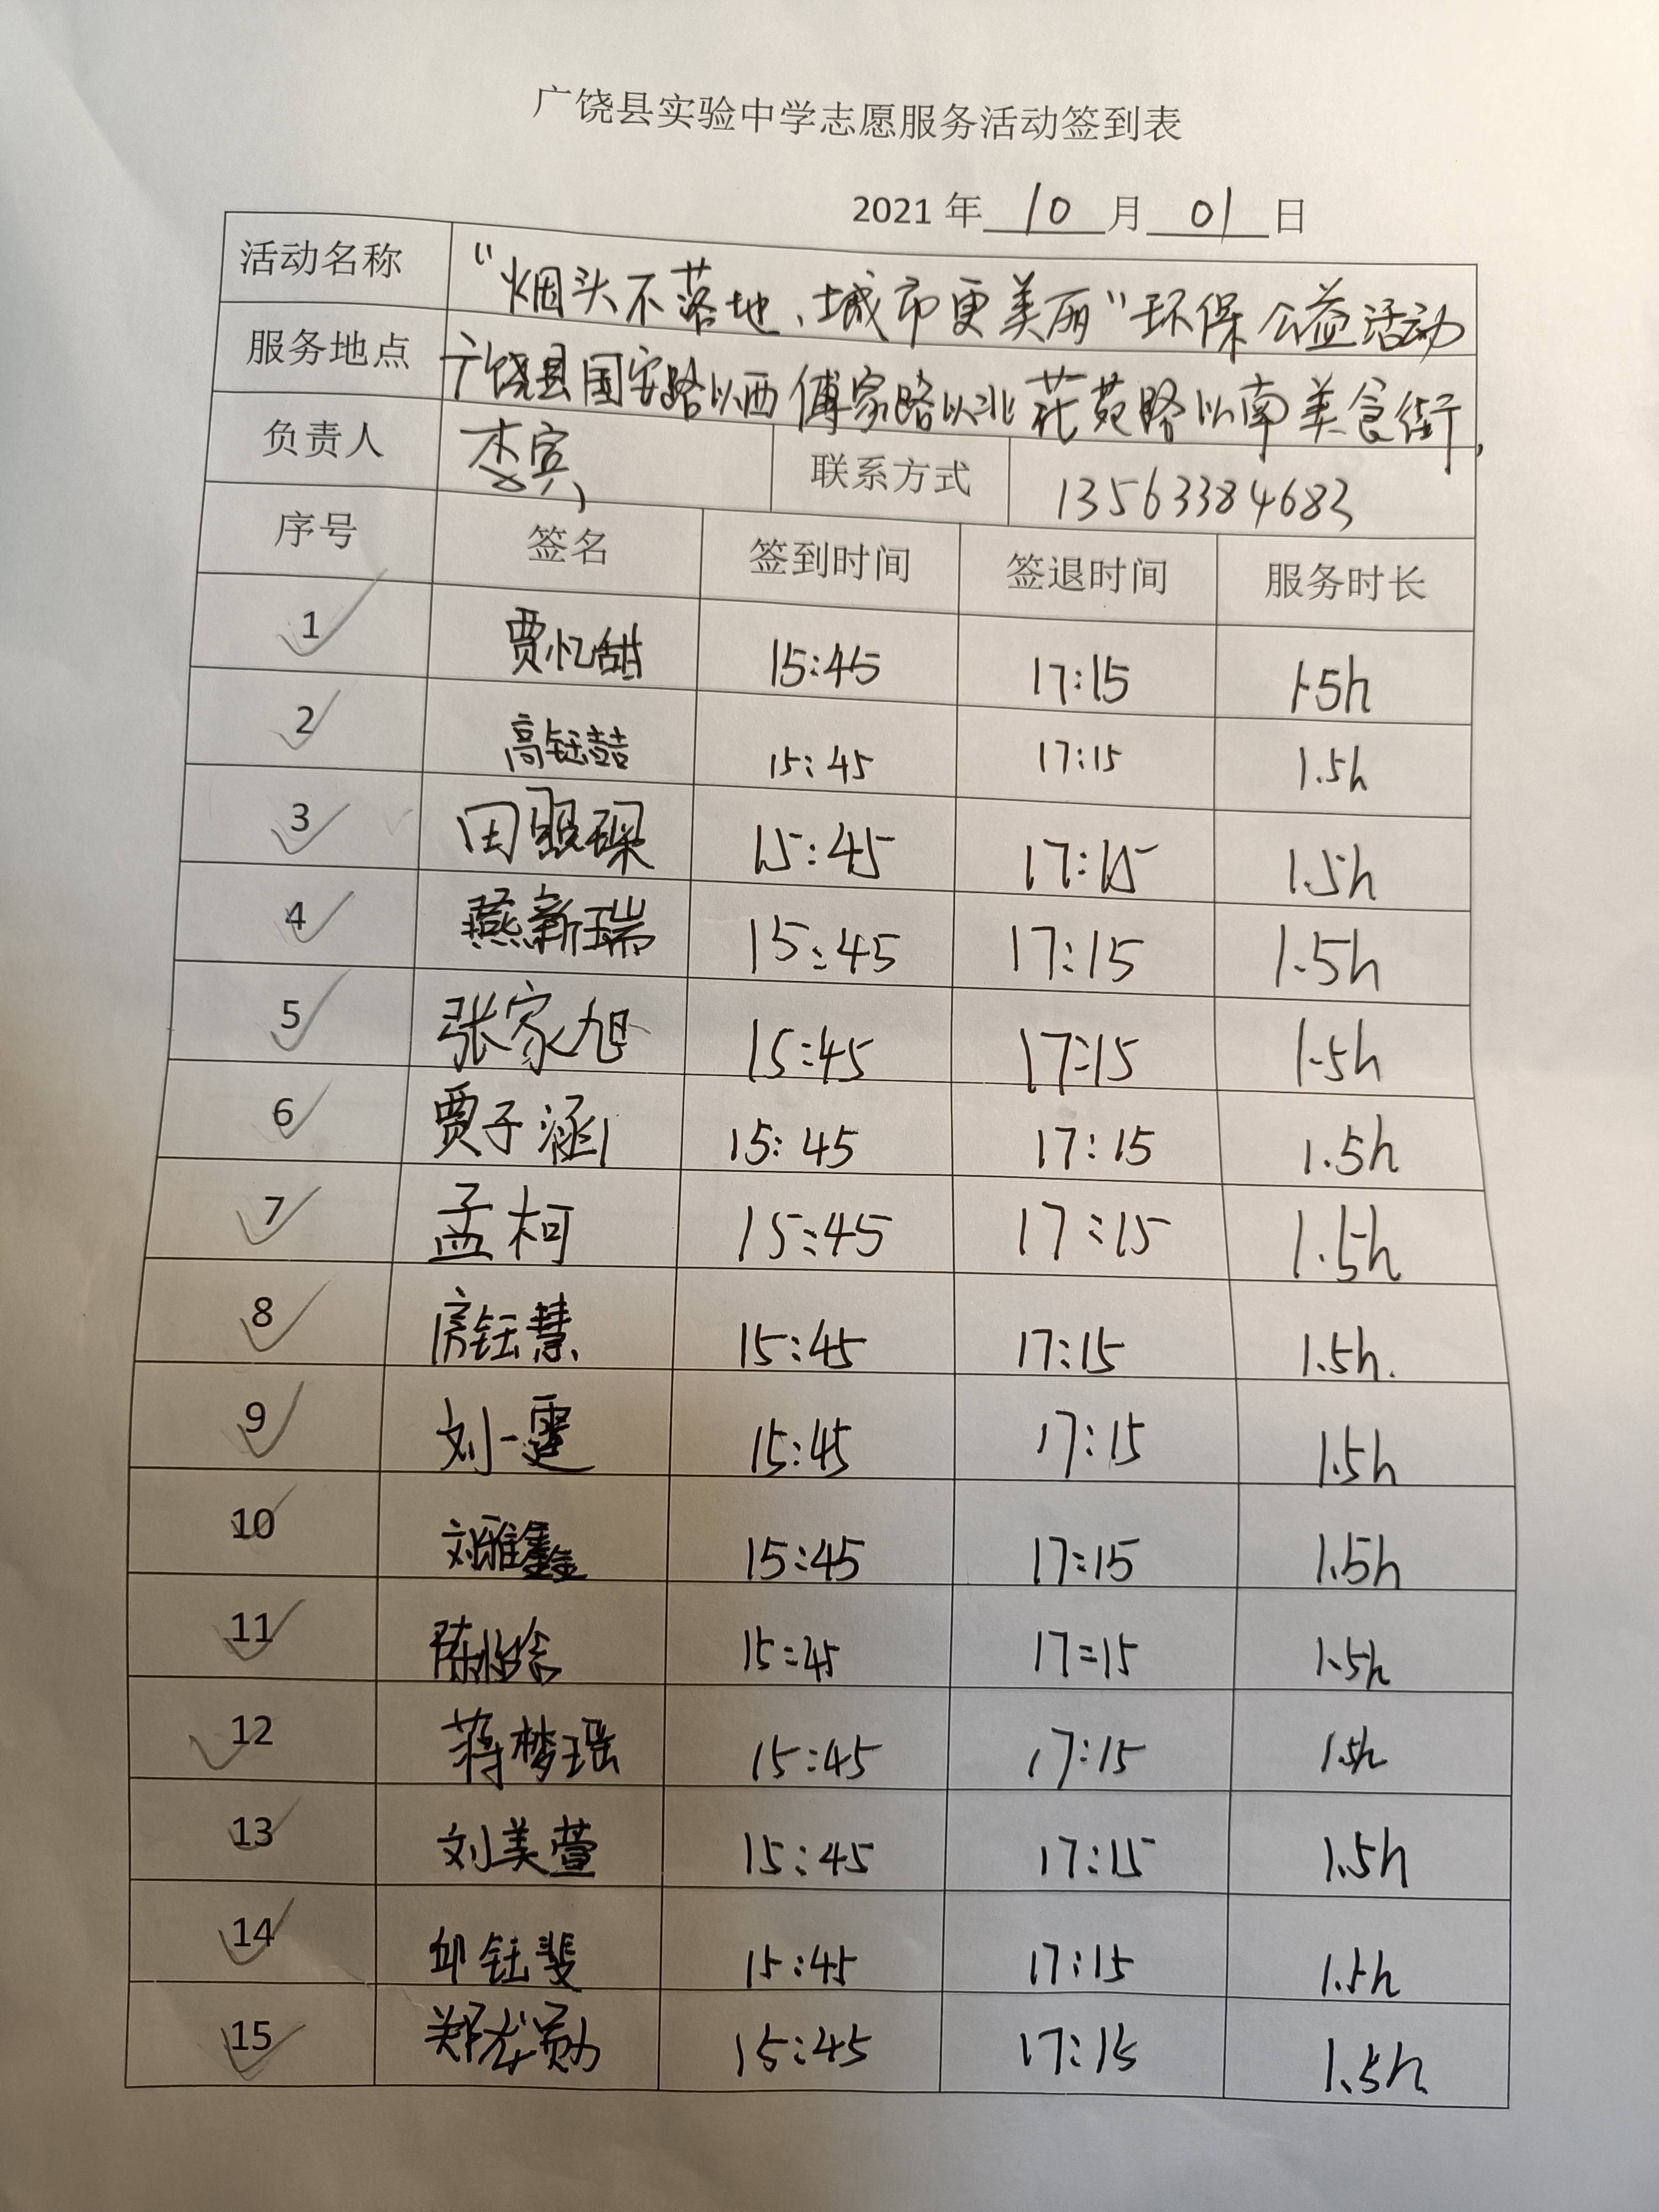 广饶县实验中学志愿服务活动签到表
2021 年 10 月 01 日
活动名称 “烟头不落地、城市更美丽”环保公益活动
服务地点 广饶县国安路以西傅家路以北花苑路以南美食街
负责人 李宾 联系方式 13563384683
序号 签名 签到时间 签退时间 服务时长
1 贾忆甜 15:45 17:15 1.5h
2 高钰喆 15:45 17:15 1.5h
3 田 15:45 17:15 1.5h
4 燕新瑞 15:45 17:15 1.5h
5 张家旭 15:45 17:15 1.5h
6 贾子涵 15:45 17:15 1.5h
7 孟柯 15:45 17:15 1.5h
8 房钰慧 15:45 17:15 1.5h.
9 刘一霆 15:45 17:15 1.5h
10 刘雅鑫 15:45 17:15 1.5h
11 陈怡晗 15:45 17:15 1.5h
12 蒋梦瑶 15:45 17:15 1.5h
13 刘美萱 15:45 17:15 1.5h
14 邱钰斐 15:45 17:15 1.5h
15 郑龙勋 15:45 17:15 1.5h